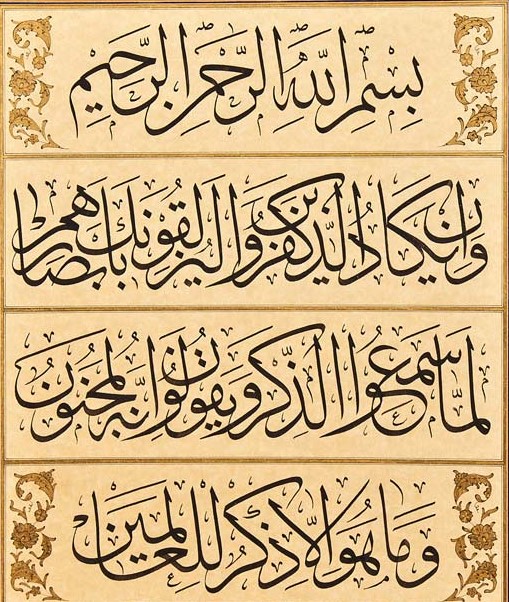 بسم الله الرحمن الرحيم
وان يكاد الذين كفروا ليزلقونك بابصارهم
لما سمعوا الذكر ويقولون انه لمجنون
وما هو الا ذكر للعالمين